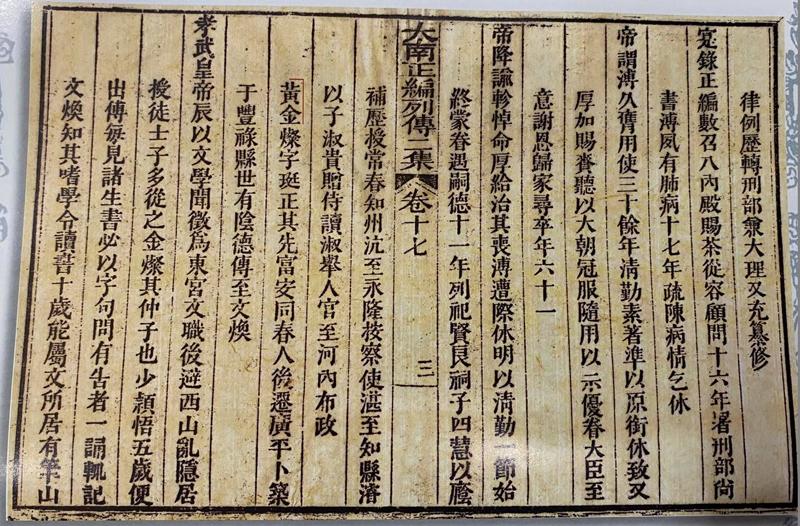 律例歷轉刑部兼大理又充纂修
寔錄正編數召入內殿賜茶從容顧問十六年署刑部尚
書溥夙有肺病十七年疏陳病情乞休
帝謂溥久膺用使三十餘年清勤素著準以原銜休致又
厚加賜賚聽以大朝冠服隨用以示優眷大臣至
意謝恩歸家尋卒年六十一
帝降諭軫悼命厚給治其喪溥遭際休明以清勤一節始
終蒙眷遇嗣德十一年列祀賢良祠子四慧以廕
補歷授常春知州沆至永隆按察使湛至知縣濬
以子淑貴贈侍讀淑舉人官至河內布政
大南正編列傳二集
卷十七
三
黃金燦字珽正其先富安同春人後遷廣平卜築
于豐祿縣世有陰德傳至文煥
孝武皇帝辰以文學聞徵為東宮文職後避西山亂隱居
授徒士子多從之金燦其仲子也少頴悟五歲便
出傳每見諸生書必以字句問有告者一誦輒記
文煥知其嗜學令讀書十歲能屬文所居有筆山